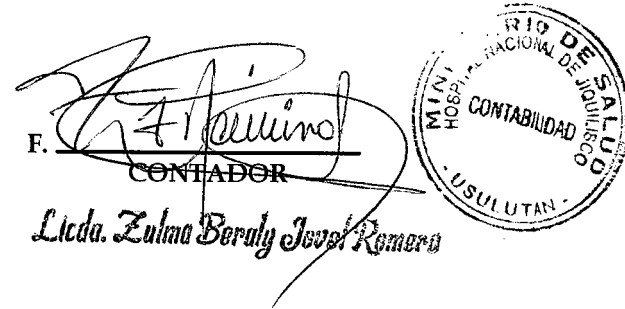 F.
CONTADOR
Licda. Zulma Beraly Jovel Romero
MINI RIO DE SALUD
HOSPITAL NACIONAL DE JIQUILISCO
CONTABILIDAD
- USULUTAN -